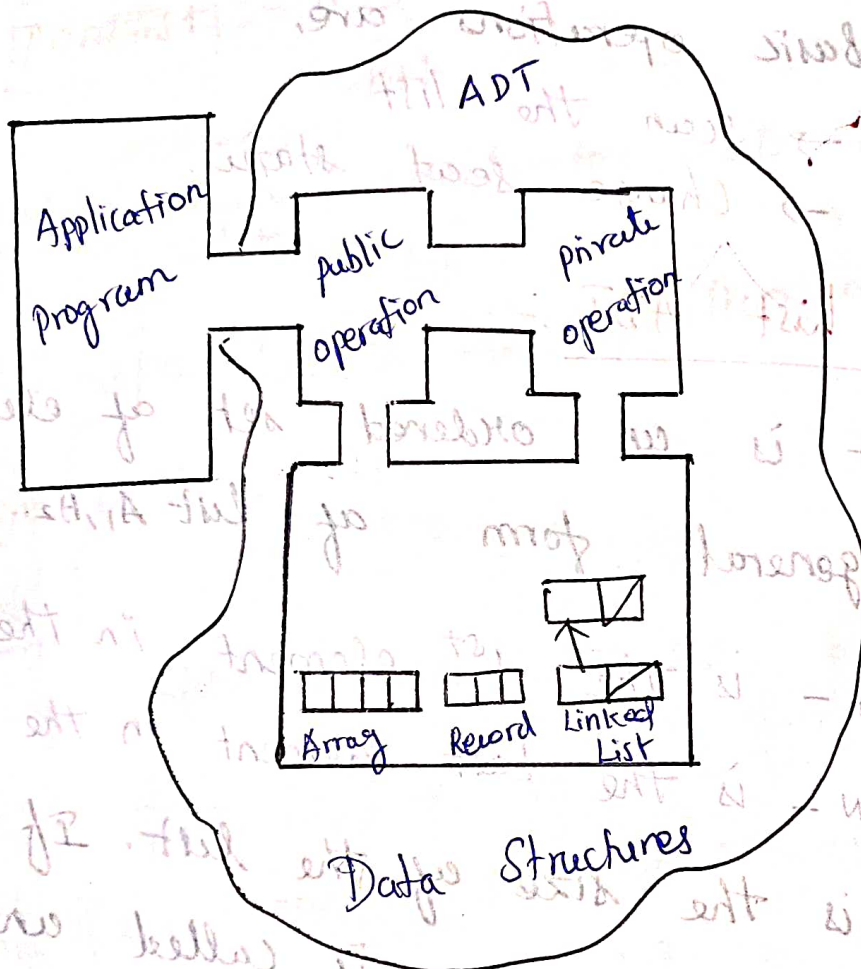 ADT
Application
Program
public
operation
private
operation
Array
Record
Linked
List
Data Structures